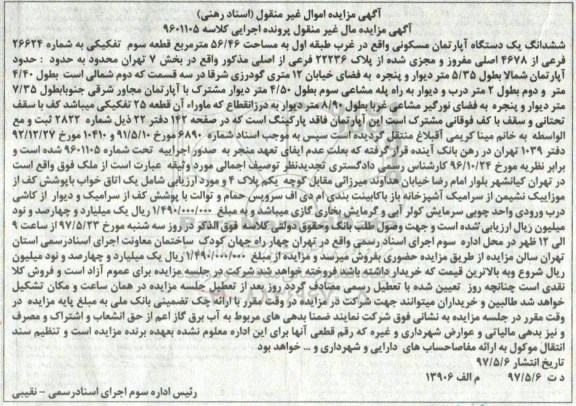 آگهی مزایده اموال غیر منقول (اسناد رهنی)
آگهی مزایده مال غیر منقول پرونده اجرایی کلاسه ۹۶۰۱۱۰۵
ششدانگ یک دستگاه آپارتمان مسکونی واقع در غرب طبقه اول به مساحت ۵۶/۴۶ مترمربع قطعه سوم تفکیکی به شماره ۲۶۶۲۴
فرعی از ۴۶۷۸ اصلی مفروز و مجزی شده از پلاک ۲۲۲۳۶ فرعی از اصلی مذکور واقع در بخش ۷ تهران محدود به حدود : حدود
آپارتمان شمالا بطول ۵/۳۵ متر دیوار و پنجره به فضای خیابان ۱۲ متری گودرزی شرقا در سه قسمت که دوم شمالی است بطول ۴/۴۰
متر و دوم بطول ۲ متر درب و دیوار به راه پله مشاعی سوم بطول ۴/۵۰ متر دیوار مشترک با آپارتمان مجاور شرقی جنوبابطول ۷/۳۵
متر دیوار و پنجره به فضای نورگیر مشاعی غربا بطول ۸/۹۰ متر دیوار به درزانقطاع که ماوراء آن قطعه ۲۵ تفکیکی میباشد کف با سقف
تحتانی و سقف با کف فوقانی مشترک است این آپارتمان فاقد پارکینگ است که در صفحه ۱۴۲ دفتر ۲۲ ذیل شماره ۲۸۲۲ ثبت و مع
الواسطه به خانم مینا کریمی آقبلاغ منتقل گردیده است سپس به موجب اسناد شماره ۶۸۹۰ مورخ ۹۱/۵/۱۰ و ۱۰۴۱۰ مورخ ۹۲/۱۲/۲۷
دفتر ۱۰۳۹ تهران در رهن بانک آینده قرار گرفته که بعلت عدم ایفای تعهد منجر به صدور اجراییه تحت شماره ۹۶۰۱۱۰۵ شده است و
برابر نظریه مورخ ۹۶/۱۰/۲۴ کارشناس رسمی دادگستری تجدیدنظر توصیف اجمالی مورد وثیقه عبارت است از ملک فوق واقع است
در تهران کیانشهر بلوار امام رضا خیابان هداوند میرزائی مقابل کوچه یکم پلاک ۴ و مورد ارزیابی شامل یک اتاق خواب باپوشش کف از
موزاییک نشیمن از سرامیک آشپزخانه باز باکابینت بندی ام دی اف سرویس حمام و توالت با پوشش کف از سرامیک و دیوار از کاشی
درب ورودی واحد چوبی سرمایش کولر آبی و گرمایش بخاری گازی میباشد و به مبلغ ۱/۴۹۰/۰۰۰/۰۰۰ ریال یک میلیارد و چهارصد و نود
میلیون ریال ارزیابی شده است و جهت وصول طلب بانک وحقوق دولتی کلاسه فوق الذکر در روز سه شنبه مورخ ۹۷/۵/۲۳ از ساعت ۹
الی ۱۲ ظهر در محل اداره سوم اجرای اسناد رسمی واقع در تهران چهار راه جهان کودک ساختمان معاونت اجرای اسنادرسمی استان
تهران سالن مزایده از طریق مزایده حضوری بفروش میرسد و مزایده از مبلغ ۱/۴۹۰/۰۰۰/۰۰۰ ریال یک میلیارد و چهارصد و نود میلیون
ریال شروع وبه بالاترین قیمت که خریدار داشته باشد فروخته خواهد شد شرکت در جلسه مزایده برای عموم آزاد است و فروش کلا
نقدی است چنانچه روز تعیین شده با تعطیل رسمی مصادف گردد روز بعد از تعطیل جلسه مزایده در همان ساعت و مکان تشکیل
خواهد شد طالبین و خریداران میتوانند جهت شرکت در مزایده در وقت مقرر با ارائه چک تضمینی بانک ملی به مبلغ پایه مزایده در
وقت مقرر در جلسه مزایده به نشانی فوق شرکت نمایند ضمنا بدهی های مربوط به آب برق گاز اعم از حق انشعاب و اشتراک و مصرف
و نیز بدهی مالیاتی و عوارض شهرداری و غیره که رقم قطعی آنها برای این اداره معلوم نشده بعهده برنده مزایده است و تنظیم سند
انتقال موکول به ارائه مفاصاحساب های دارایی و شهرداری و ... خواهد بود
تاریخ انتشار ۹۷/۵/۶
د ت ۹۷/۵/۶ م الف ۱۳۹۰۶
رئیس اداره سوم اجرای اسنادرسمی – نقیبی